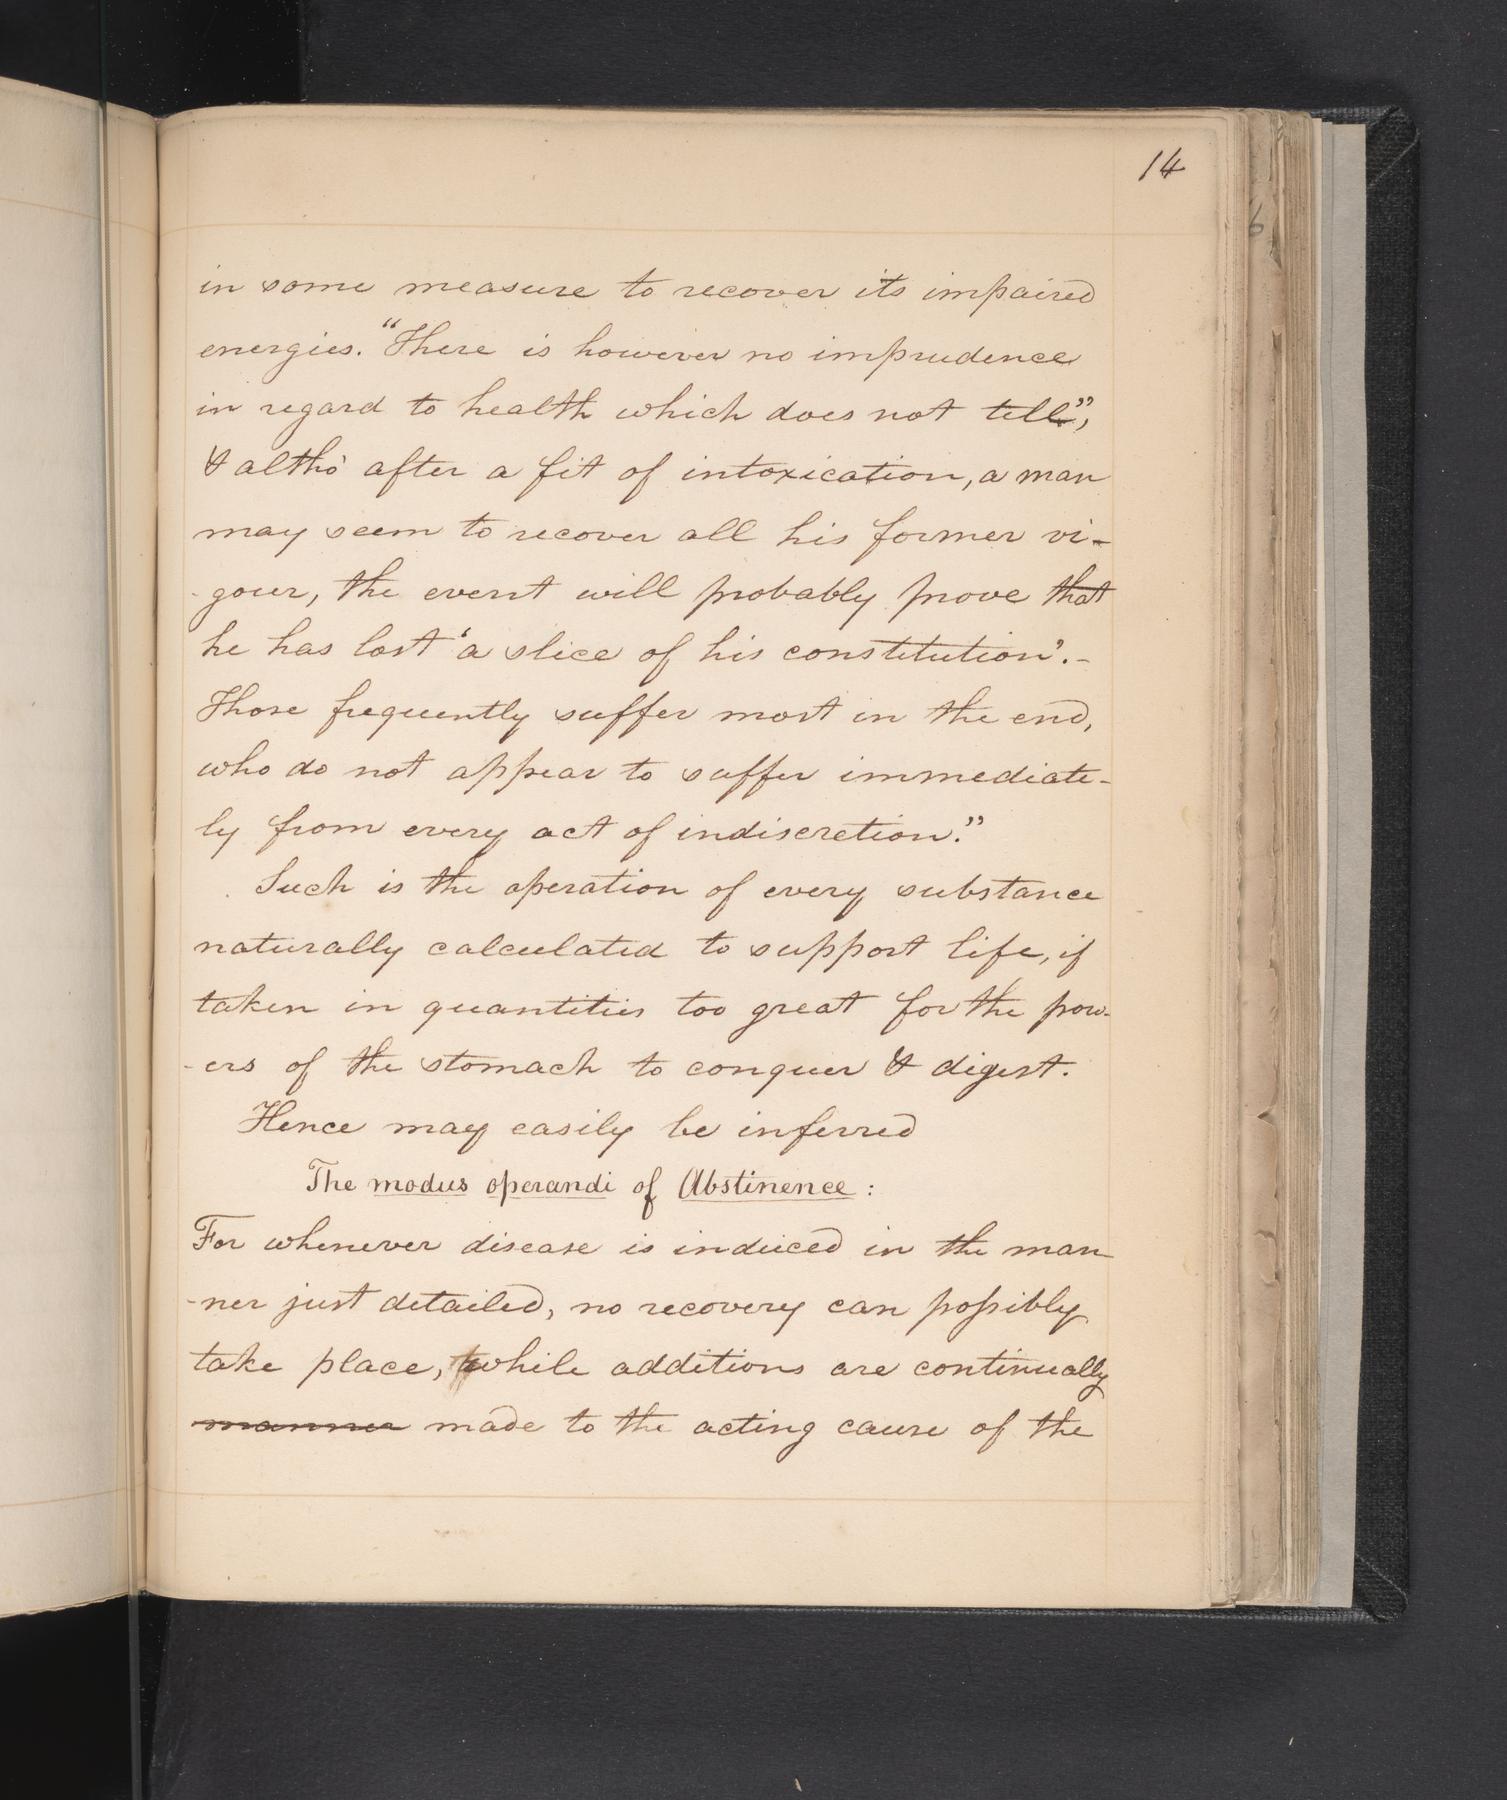 14
in some measure to recover its impaired
energies. "There is however no imprudence
in regard to health which does not tell",
& altho' after a fit of intoxication, a man
may seem to recover all his former vi-
-gour, the event will probably prove that
he has lost 'a slice of his constitution'.-
Those frequently suffer most in the end,
who do not appear to suffer immediate-
ly from every act of indiscretion."
Such is the operation of every substance
naturally calculated to support life, if
taken in quantities too great for the pow-
-ers of the stomach to conquer & digest.
Hence may easily be inferred
The modus operandi of Abstinence :
For whenever disease is induced in the man-
-ner just detailed, no recovery can possibly
take place, while additions are continually
manner made to the acting cause of the